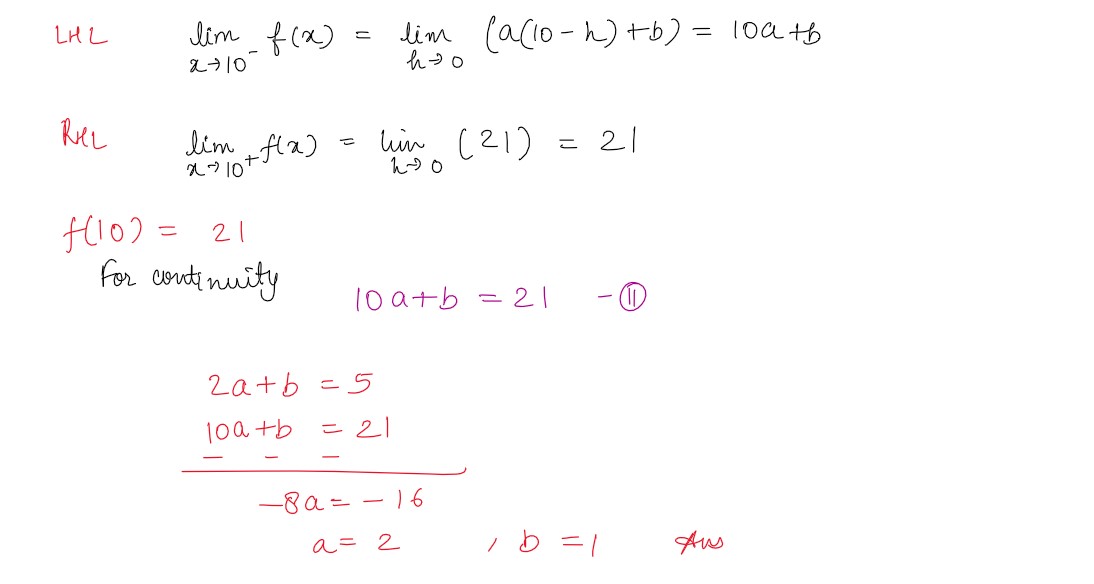 LHL lim x→10⁻ f(x) = lim h→0 (a(10-h)+b) = 10a+b
RHL lim x→10+ f(x) = lim h→0 (21) = 21
f(10) = 21
For continuity
10a+b = 21 -(II)
2a+b = 5
10a+b = 21
- - -
-8a = -16
a = 2 , b = 1 Ans